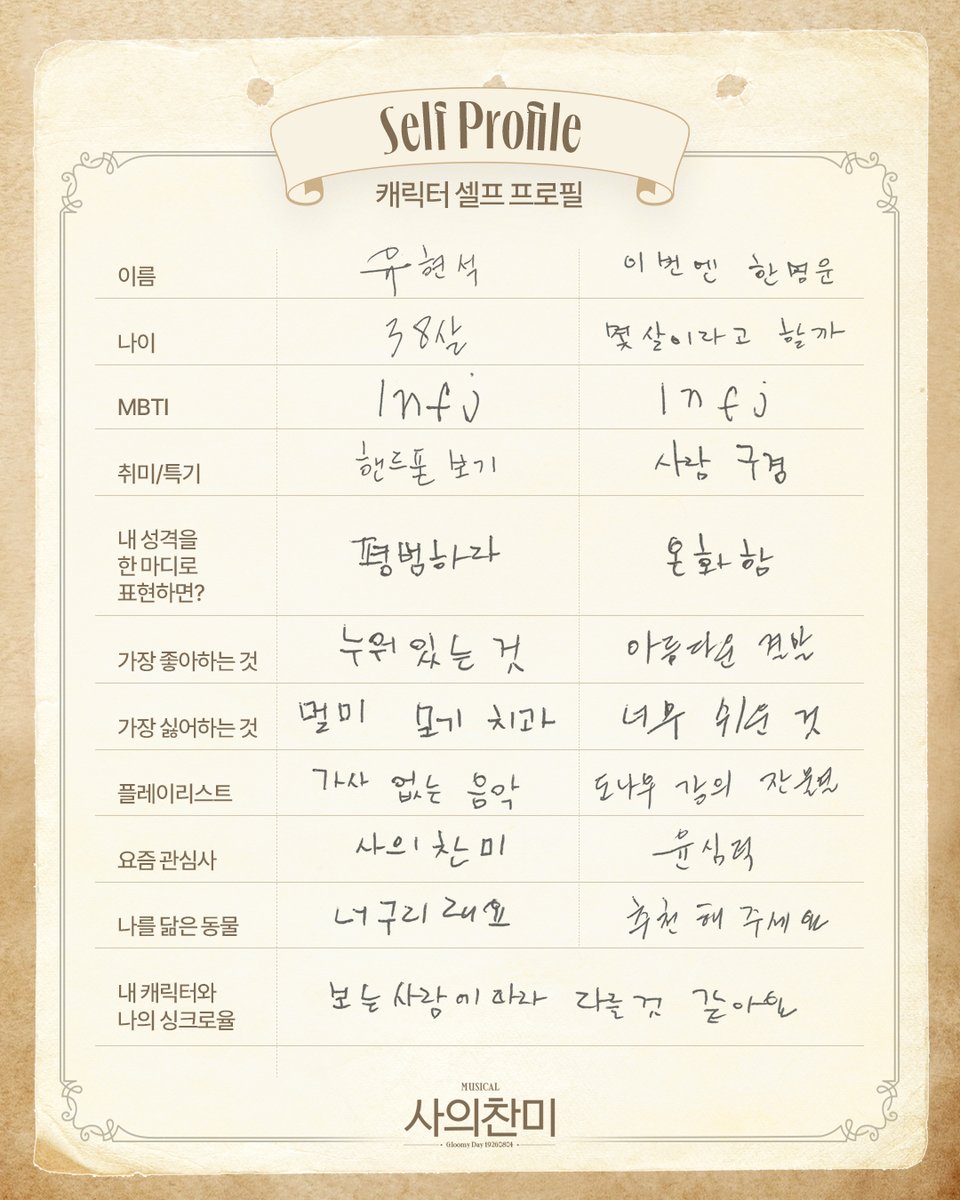 Self Profile
캐릭터 셀프 프로필
이름 유현석 이번엔 한명운
나이 38살 몇살이라고 할까
MBTI Infj Infj
취미/특기 핸드폰 보기 사람 구경
내 성격을
한 마디로
표현하면?
평범하다 온화함
가장 좋아하는 것 누워 있는 것 아름다운 결말
가장 싫어하는 것 멀미 모기 치과 너무 쉬운 것
플레이리스트 가사 없는 음악 도나우 강의 잔물결
요즘 관심사 사의찬미 윤심덕
나를 닮은 동물 너구리래요 추천해주세요
내 캐릭터와
나의 싱크로율
보는 사람에 따라 다를것 같아요
MUSICAL
사의찬미
Gloomy Day 19260804